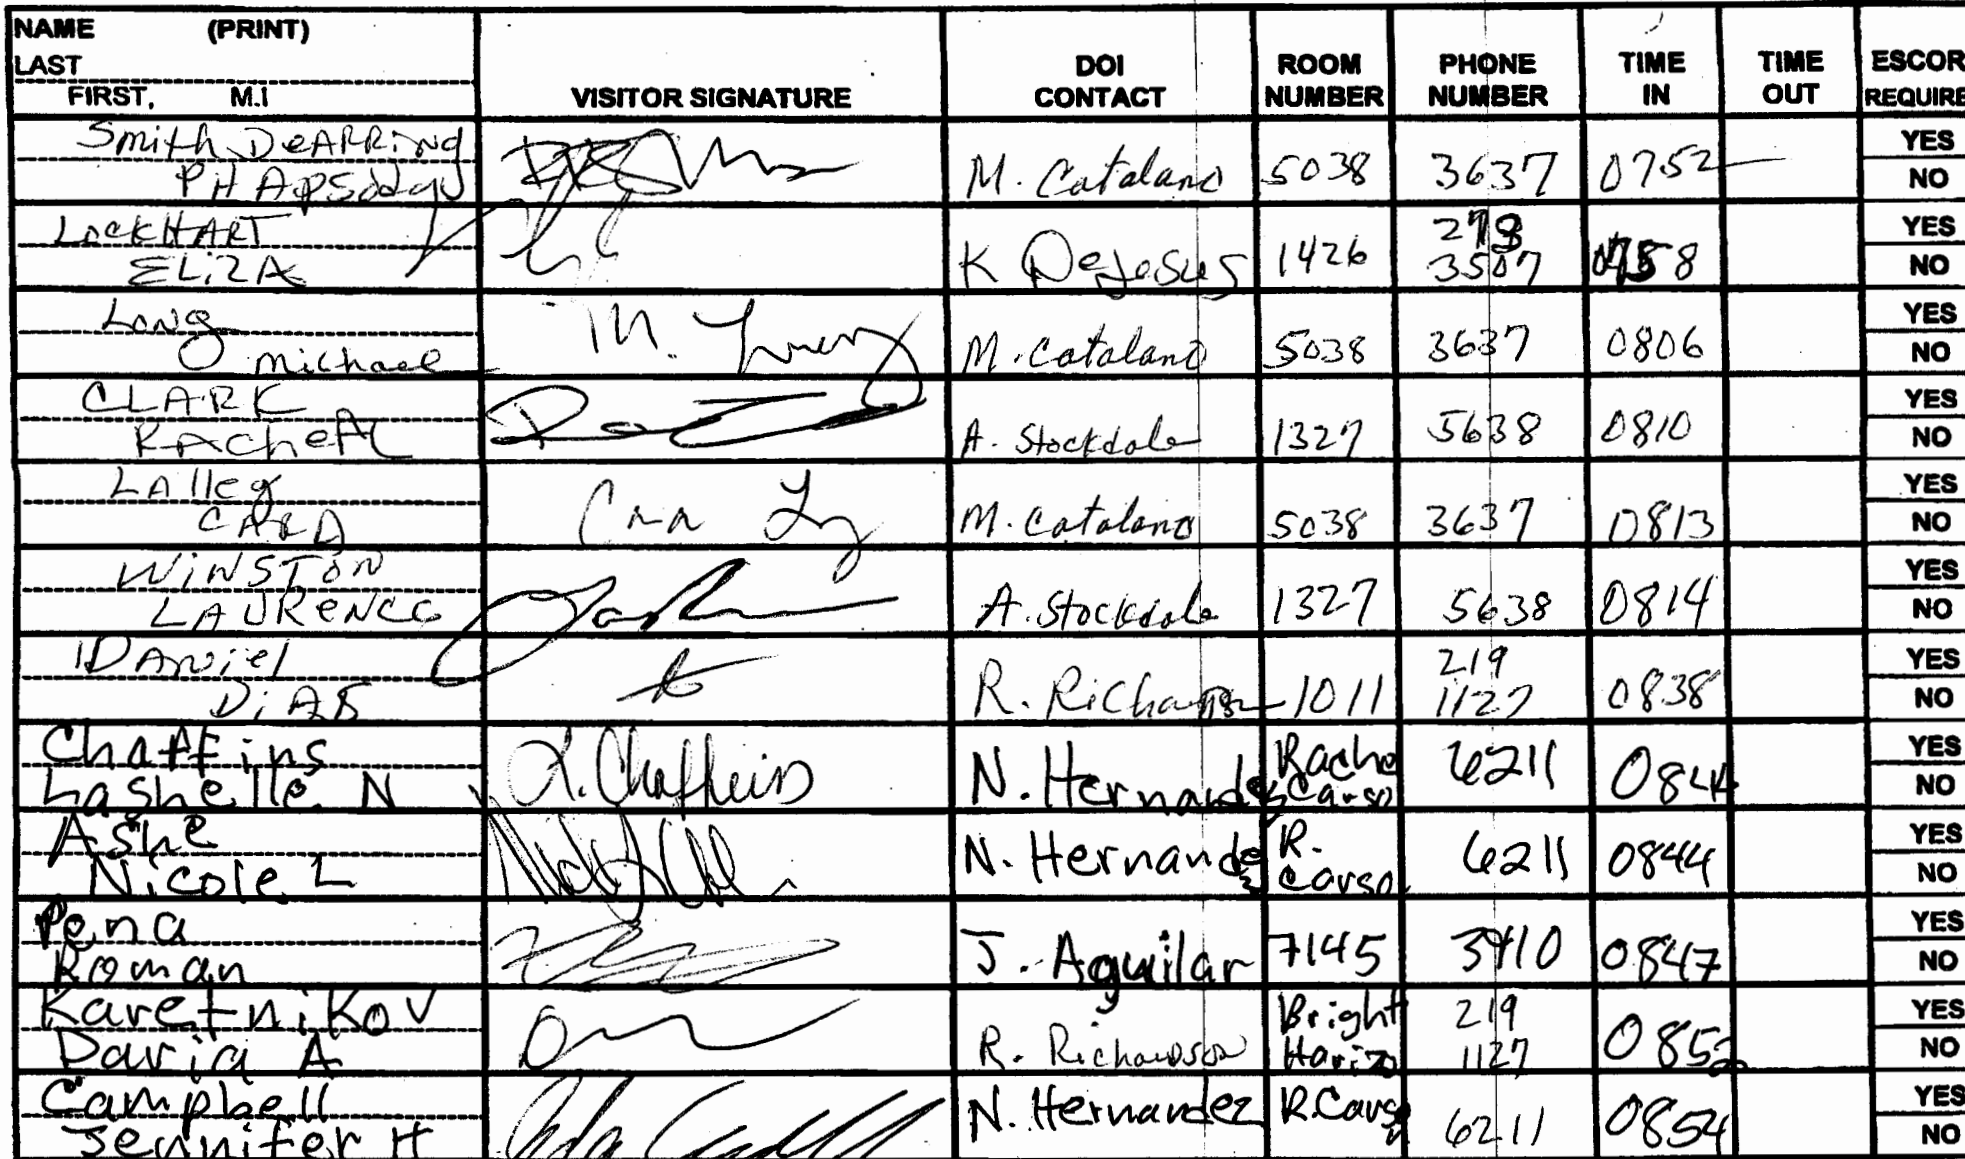 NAME (PRINT)
LAST
FIRST, M.I
VISITOR SIGNATURE
DOI CONTACT
ROOM NUMBER
PHONE NUMBER
TIME IN
TIME OUT
ESCOR
REQUIRE
Smith DeARRiNg
M. Catalano 5038 3637 0752
YES
NO
LockHART
ELIZA
K DeJesus 1426
3507
YES
NO
Long
Michael
M. Catalano 5038 3637 0806
YES
NO
CLARK
RAcheAL
A. Stockdale 1327 5638 0810
YES
NO
LAlley
CARA
M. Catalano 5038 3637 0813
YES
NO
WiNSTON
LAURENCE
A. Stockdale 1327 5638 0814
YES
NO
DANiel
R. 1011
219
1127
0838
YES
NO
Chaffins
Lashelle N
L. Chaffins
N. Hernandez
6211 0844
YES
NO
Ashe
Nicole L
N. Hernandez
R.
Carso
6211 0844
YES
NO
Pena
Roman
J. Aguilar 7145 0847
YES
NO
Karetnikov
Daria A
R. Richardson
Bright
Horizo
219
1127
YES
NO
Campbell
Jennifer H
N. Hernandez R. Carso
6211 0854
YES
NO